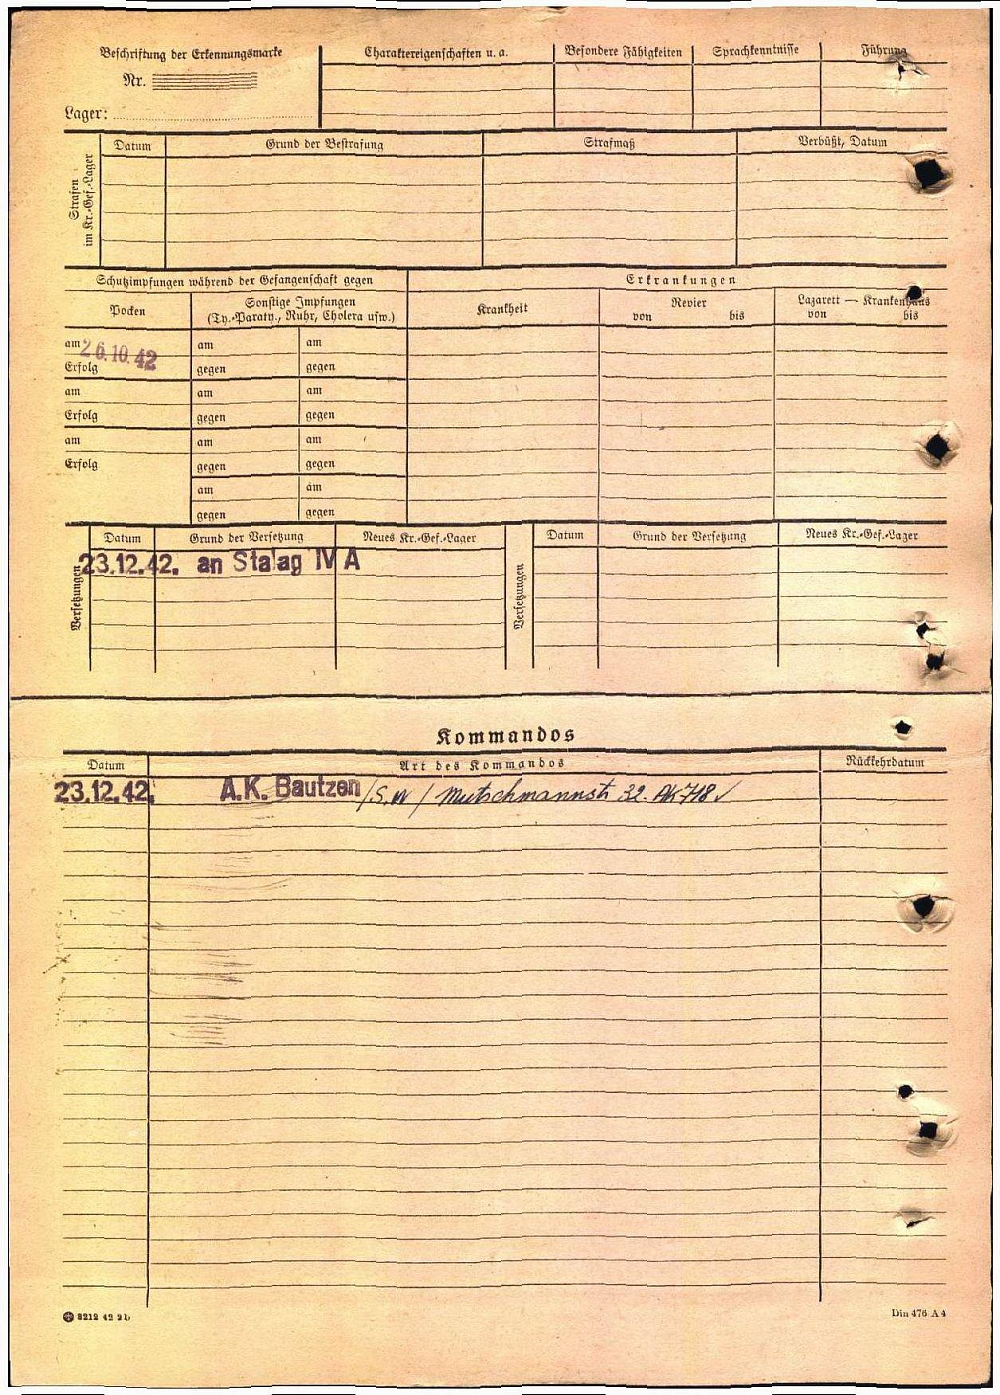 Beschriftung der Erkennungsmarke
Nr.
Lager:
Charaktereigenschaften u. a. Besondere Fähigkeiten Sprachkenntnisse Führung
Strafen
im Kr.-Gef.-Lager
Datum Grund der Bestrafung Strafmaß Verbüßt, Datum
Schutzimpfungen während der Gefangenschaft gegen Erkrankungen
Pocken Sonstige Impfungen
(Ty.-Paraty., Ruhr, Cholera usw.) Krankheit Revier
von bis Lazarett — Krankenhaus
von bis
am 26.10.42 am am
Erfolg gegen gegen
am am am
Erfolg gegen gegen
am am am
Erfolg gegen gegen
am am
gegen gegen
Versetzungen Datum Grund der Versetzung Neues Kr.-Gef.-Lager Versetzungen Datum Grund der Versetzung Neues Kr.-Gef.-Lager
23.12.42. an Stalag IV A
Kommandos
Datum Art des Kommandos Rückkehrdatum
23.12.42. A.K. Bautzen /S.W/ Mutschmannstr 32. AK 718
8212 42 2b Din 476 A 4